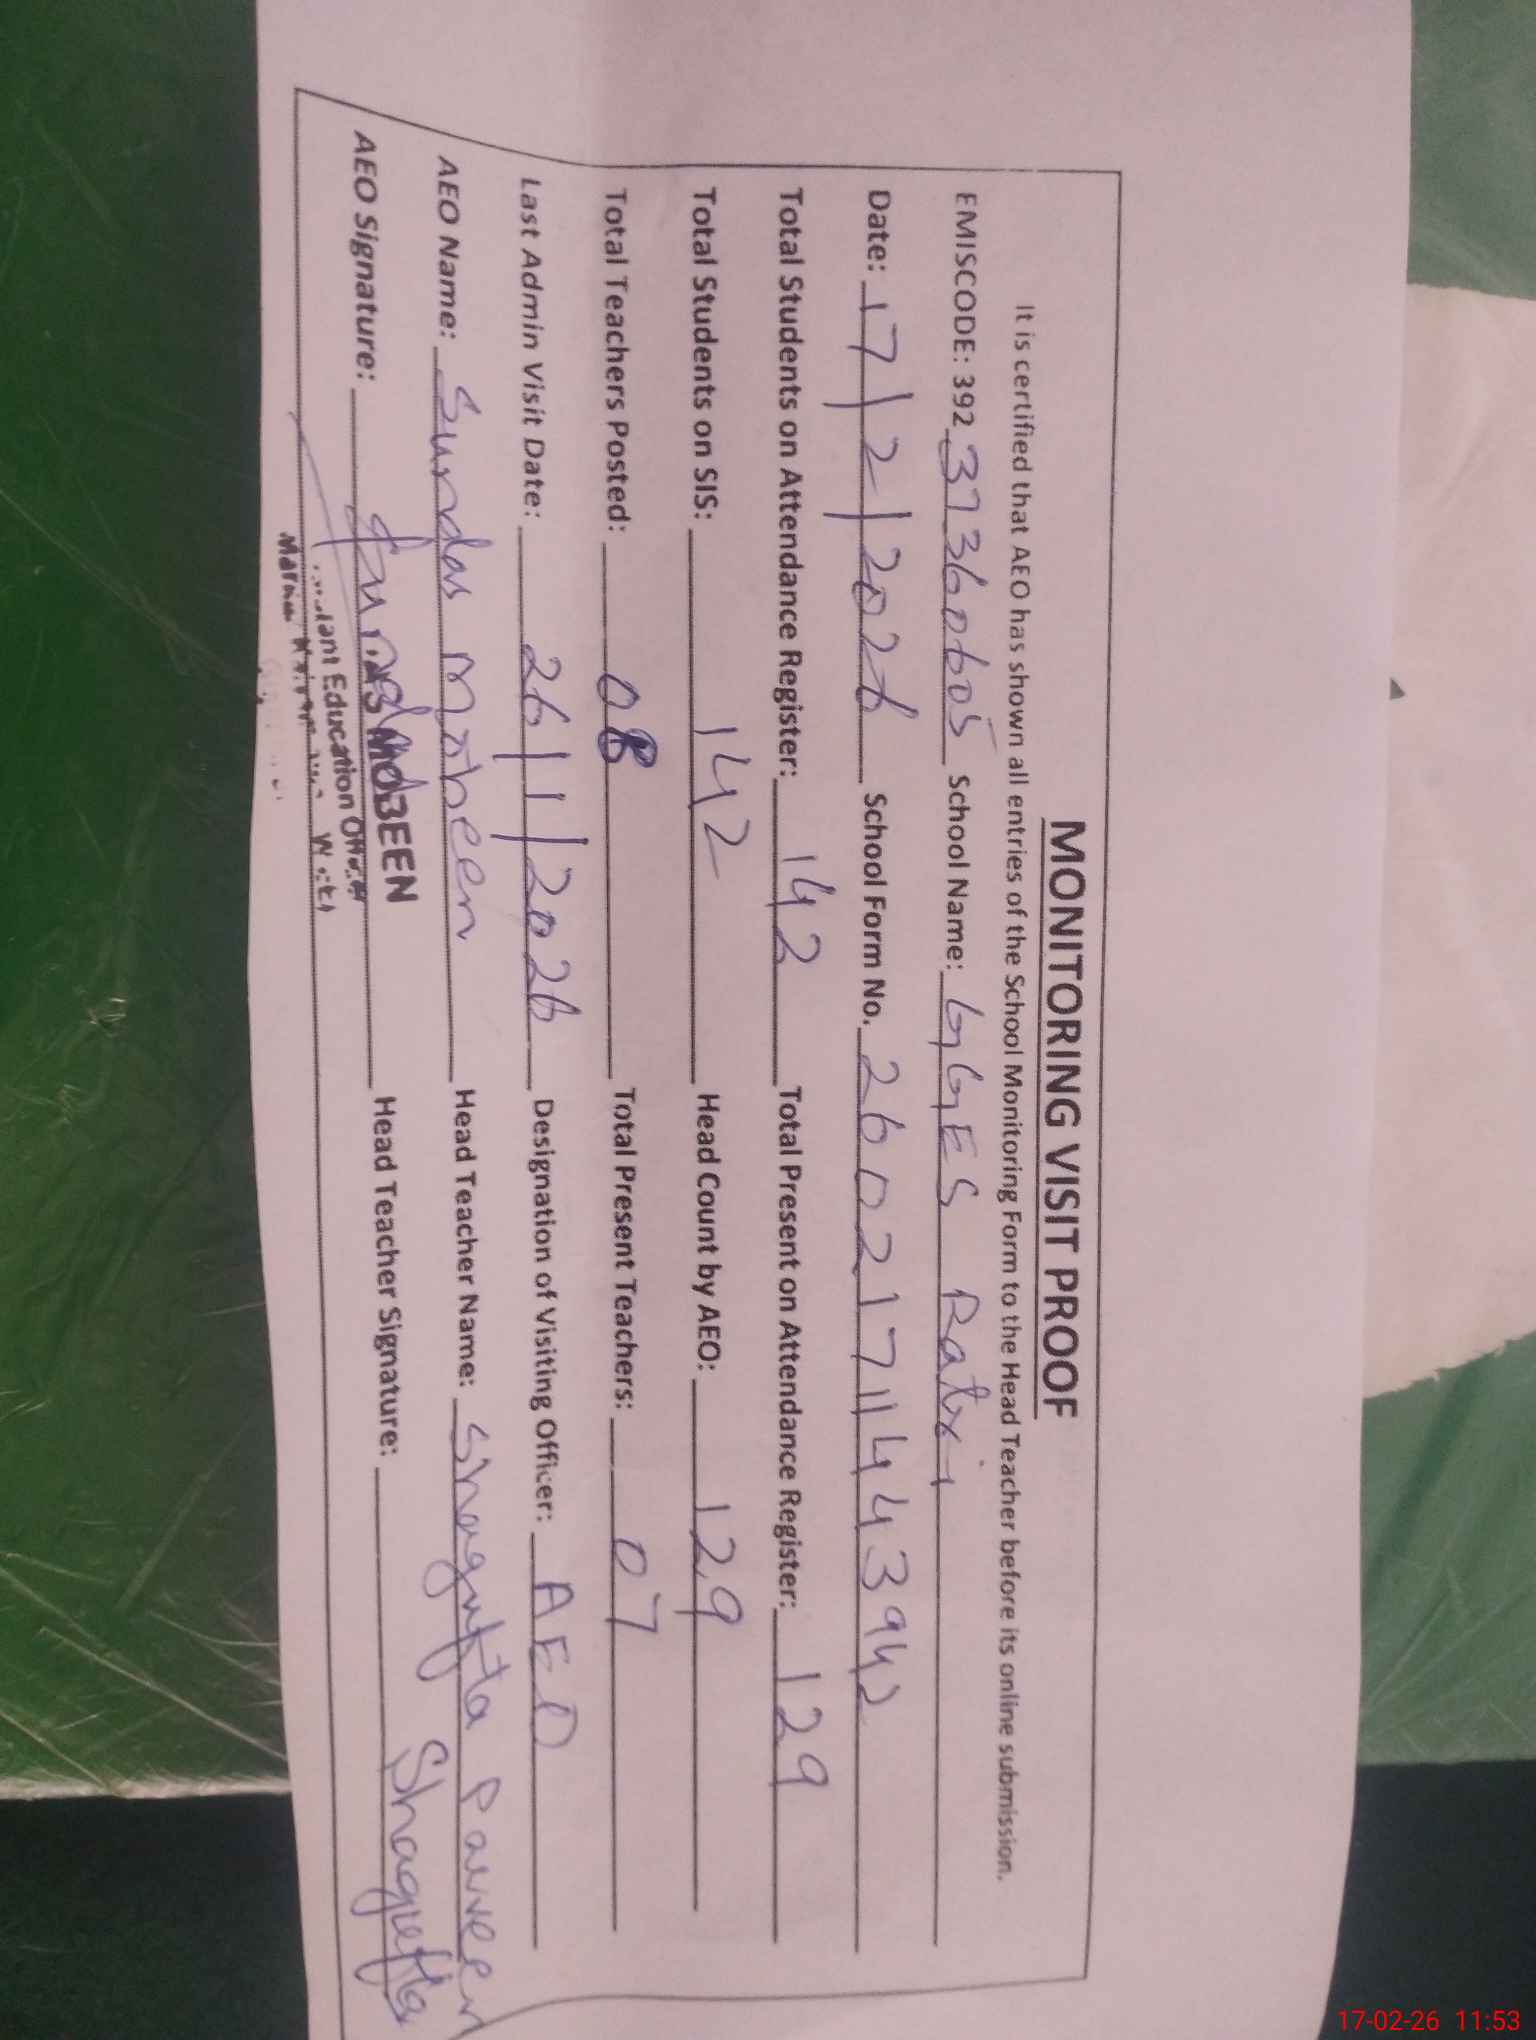 MONITORING VISIT PROOF
It is certified that AEO has shown all entries of the School Monitoring Form to the Head Teacher before its online submission.
EMISCODE: 392 37360605 School Name: GGES Ratri
Date: 17/2/2026 School Form No. 26021711443942
Total Students on Attendance Register: 142 Total Present on Attendance Register: 129
Total Students on SIS: 142 Head Count by AEO: 129
Total Teachers Posted: 08 Total Present Teachers: 07
Last Admin Visit Date: 26/1/2026 Designation of Visiting Officer: AEO
AEO Name: Sundas mobeen Head Teacher Name: Shagufta Parveen
AEO Signature: Sundas Head Teacher Signature: Shagufta
MOBEEN
Education Officer
17-02-26 11:53